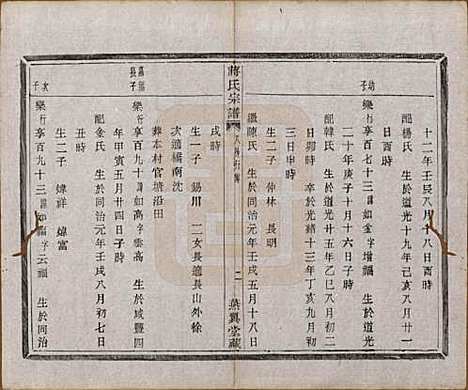 十二年壬辰八月十八日酉時
幼子
樂行享百七十三諱如金字增福 生於道光
日酉時
配楊氏 生於道光十九年己亥八月廿一
二十年庚子十月十六日子時
配韓氏 生於道光廿五年乙巳八月初二
日卯時 卒於光緒十三年丁亥九月初
三日申時
繼陳氏 生於同治元年壬戌五月十八日
生二子 仲林 長明
戌時
蔣氏宗譜
二
葉翼堂藏
生一子 錫川 二女長適長山外徐
次適橋南沈
葬本村官塘沿田
長子
樂行享百九十諱如高字雲高 生於咸豐四
年甲寅五月廿四日子時
配金氏 生於同治元年壬戌八月初七日
生二子 煒祥 煒富
次子
樂行享百九十三諱如福字云福 生於同治